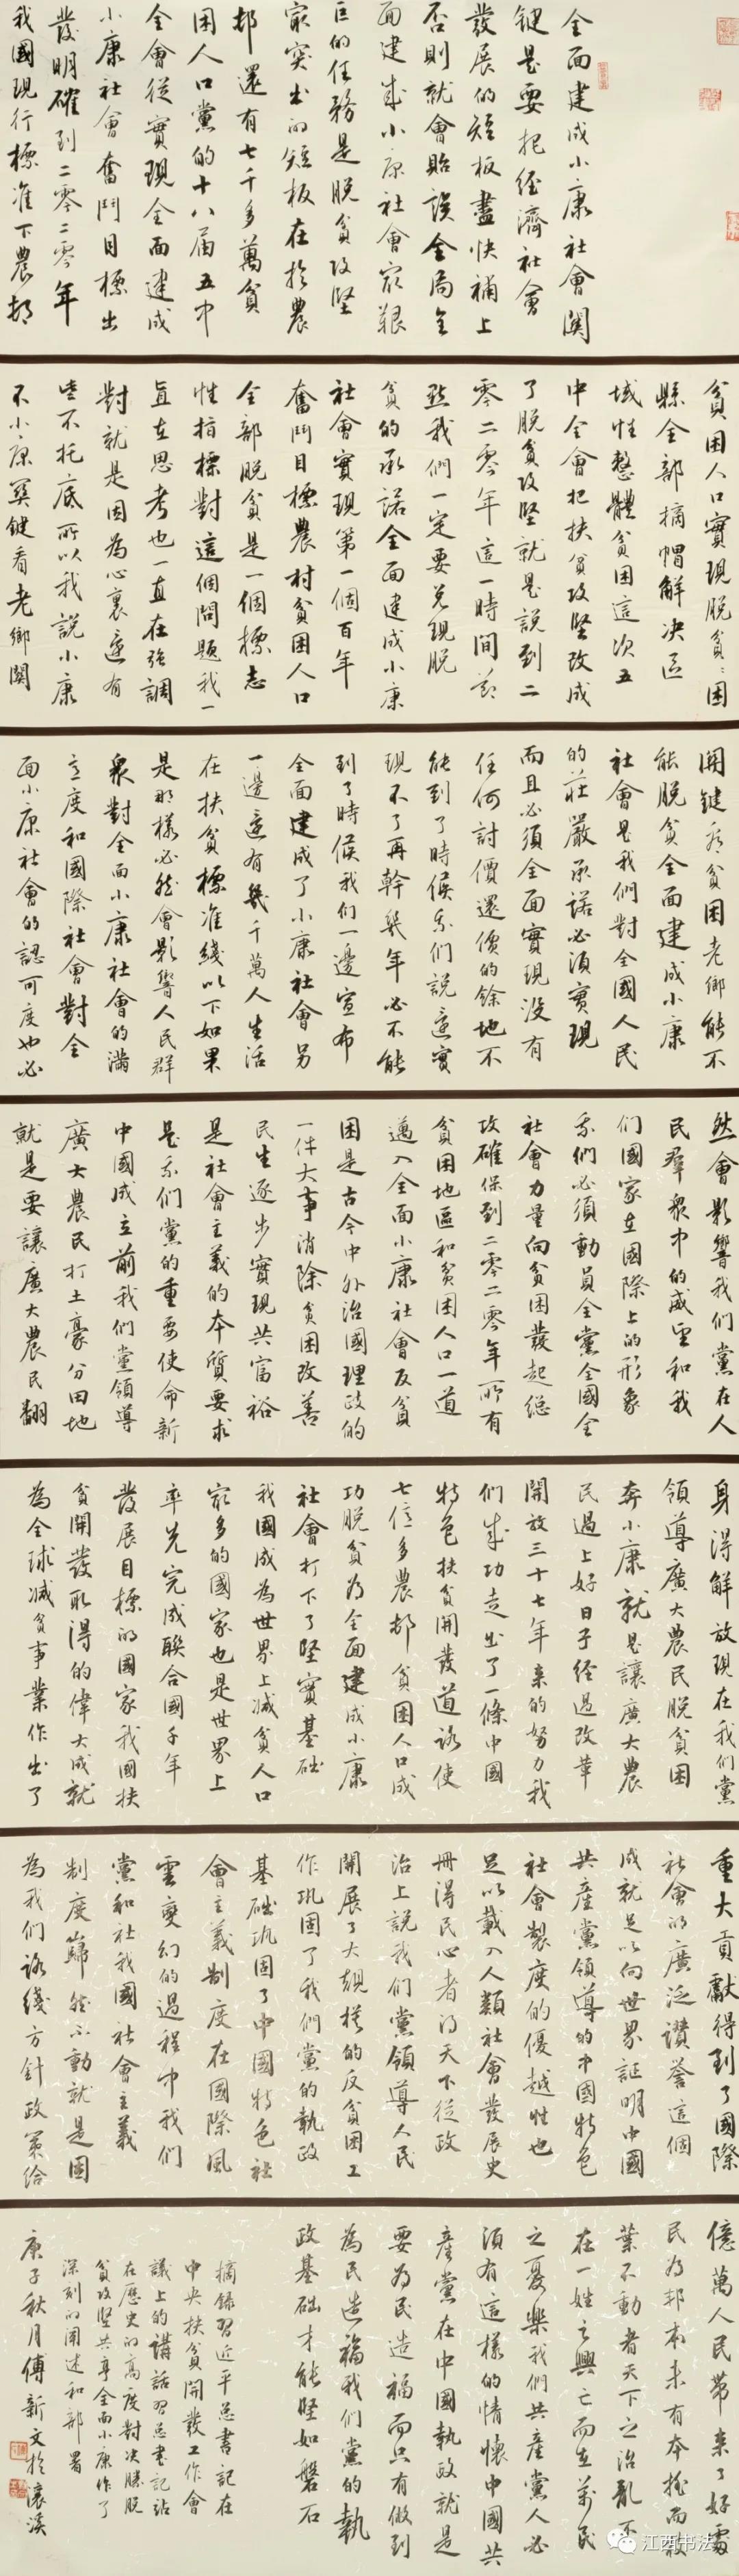 全面建成小康社會関
键是要把经濟社會
發展的短板盡快補上
否則就會貽誤全局全
面建成小康社會最艱
巨的任務是脱貧攻堅
最突出的短板在於農
邨還有七千多萬貧
困人口黨的十八届五中
全會從實現全面建成
小康社會奮鬥目標出
發明確到二零二零年
我國現行標准下農邨
貧困人口實現脱貧貧困
縣全部摘帽解决區
域性整體貧困這次五
中全會把扶貧攻堅改成
了脱貧攻堅就是説到二
零二零年這一時間節
點我們一定要兑現脱
貧的承諾全面建成小康
社會實現第一個百年
奮鬥目標農村貧困人口
全部脱貧是一個標志
性指標對這個問題我一
直在思考也一直在強調
對就是因為心裏還有
些不托底所以我説小康
不小康関键看老鄉関
開键看貧困老鄉能不
能脱貧全面建成小康
社會是我們對全國人民
的莊嚴承諾必須實現
而且必須全面實現没有
任何討價還價的餘地不
能到了時候我们説還實
現不了再幹幾年必不能
到了時候我们一邊宣布
全面建成了小康社會另
一邊還有幾千萬人生活
在扶貧標准綫以下如果
是那樣必然會影響人民群
衆對全面小康社會的滿
意度和國際社會對全
面小康社會的認可度也必
然會影響我们黨在人
民羣衆中的威望和我
们國家在國際上的形象
我们必須動員全黨全國全
社會力量向貧困發起總
攻確保到二零二零年所有
貧困地區和貧困人口一道
邁入全面小康社會反貧
困是古今中外治國理政的
一件大事消除貧困改善
民生逐步實現共富裕
是社會主義的本質要求
是我们黨的重要使命新
中國成立前我们黨領導
廣大農民打土豪分田地
就是要讓廣大農民翻
身得解放現在我们黨
領導廣大農民脱貧困
奔小康就是讓廣大農
民過上好日子经過改革
開放三十七年来的努力我
们成功走出了一條中國
特色扶貧開發道路使
七億多農邨貧困人口成
功脱貧为全面建成小康
社會打下了堅實基础
我國成為世界上减貧人口
最多的國家也是世界上
率先完成聯合國千年
發展目標的國家我國扶
貧開發取得的偉大成就
為全球减貧事業作出了
重大貢獻得到了國際
社會的廣泛讚譽這個
成就足以向世界証明中國
共産黨領導的中國特色
社會製度的優越性也
足以載入人類社會發展史
冊得民心者得天下從政
治上説我们黨領導人民
開展了大規模的反貧困工
作巩固了我們黨的執政
基础巩固了中國特色社
會主義制度在國際風
雲變幻的過程中我们
黨和社我國社會主義
制度巋然不動就是因
為我们路綫方針政策给
億萬人民帶来了好處
民为邦本未有本摇而枝
葉不動者天下之治亂不
在一姓之興亡而在萬民
之憂樂我們共産黨人必
須有這樣的情懷中國共
産黨在中國執政就是
要為民造福而只有做到
為民造福我们黨的執
政基础才能堅如磐石
摘録習近平总書記在
中央扶貧開發工作會
議上的講話習总書記站
在歷史的高度對决勝脱
貧攻堅共享全面小康作了
深刻的闡述和部署
庚子秋月傅新文於濂溪
江西书法